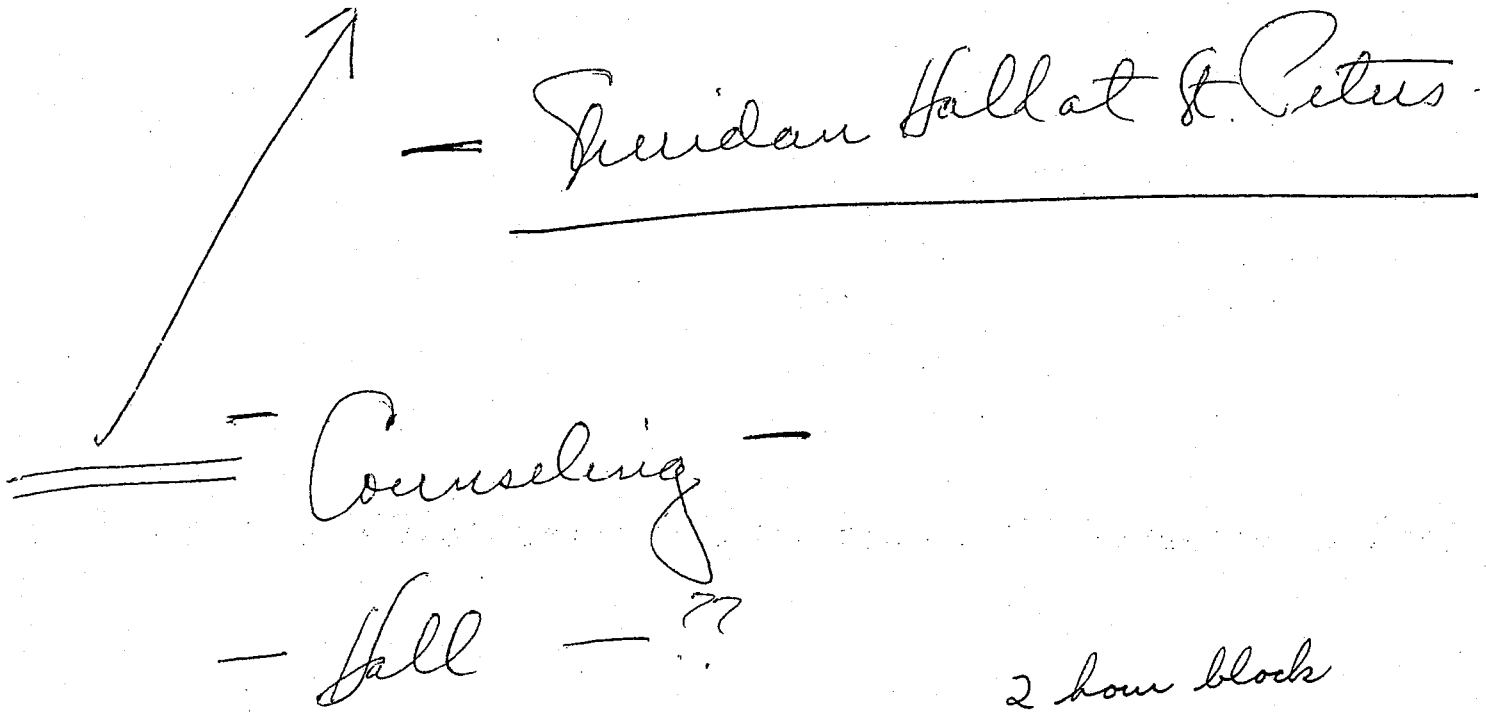 — Sheridan Hall at St. Peters.
— Counseling —
— Hall — ??
2 hour block